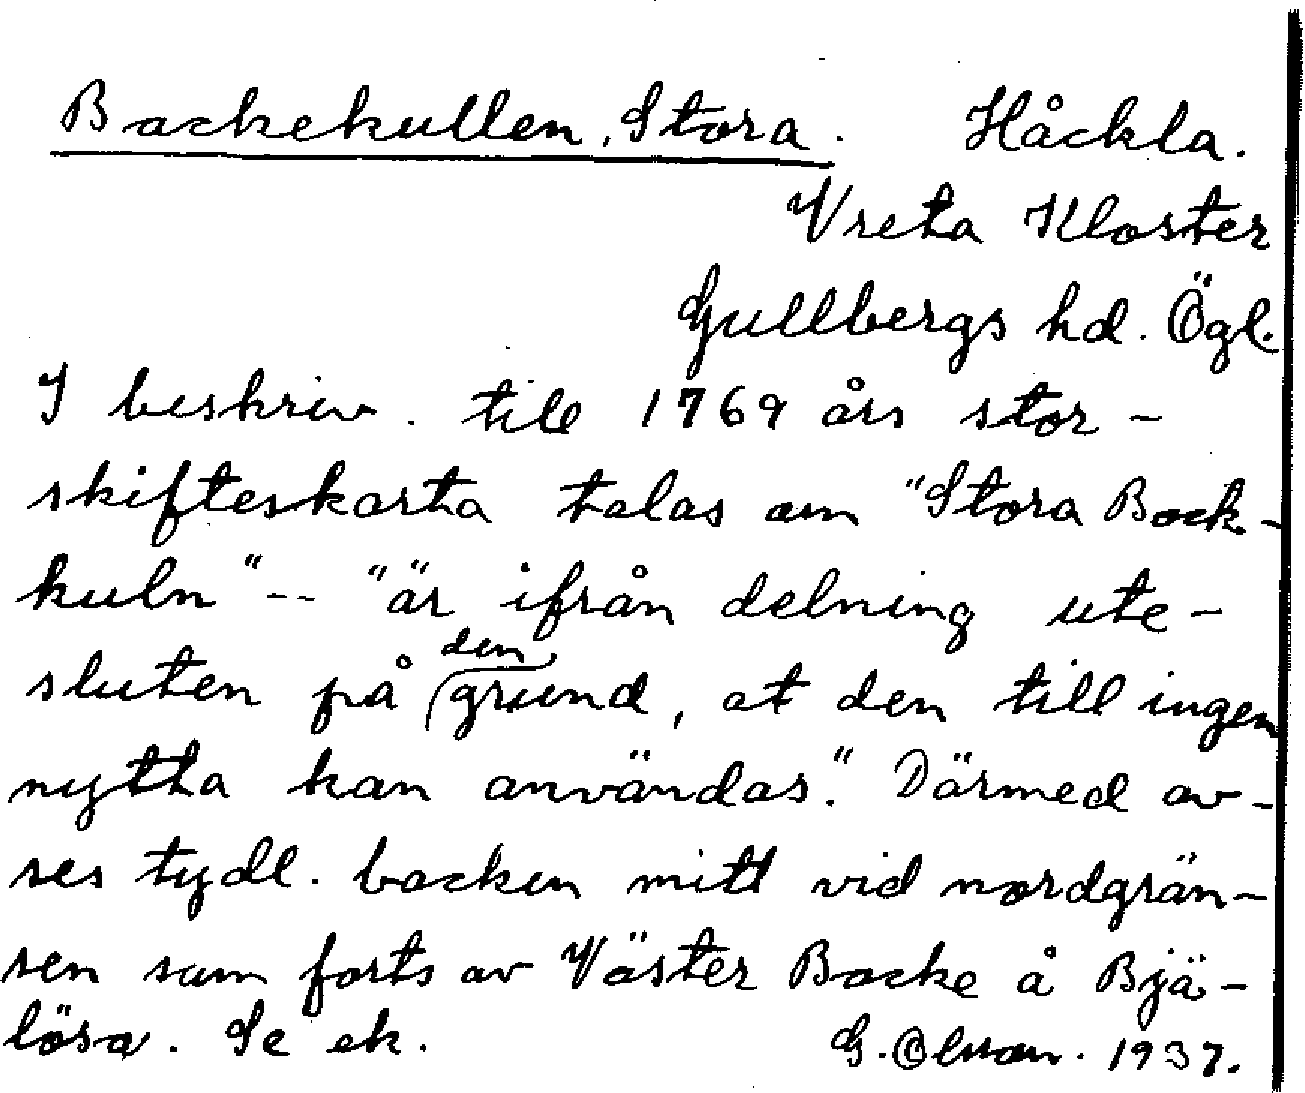 Backekullen, Stora. Håckla.
Vreta Kloster
Gullbergs hd. Ögl.
I beskriv. till 1769 års stor-
skifteskarta talas om "Stora Back-
kuln" -- "är ifrån delning ute-
sluten på den grund, at den till ingen
nytta kan användas." Därmed av-
ses tydl. backen mitt vid nordgrän-
sen som forts av Väster Backe å Bjä-
lösa. Se ek. G. Olsson. 1937.